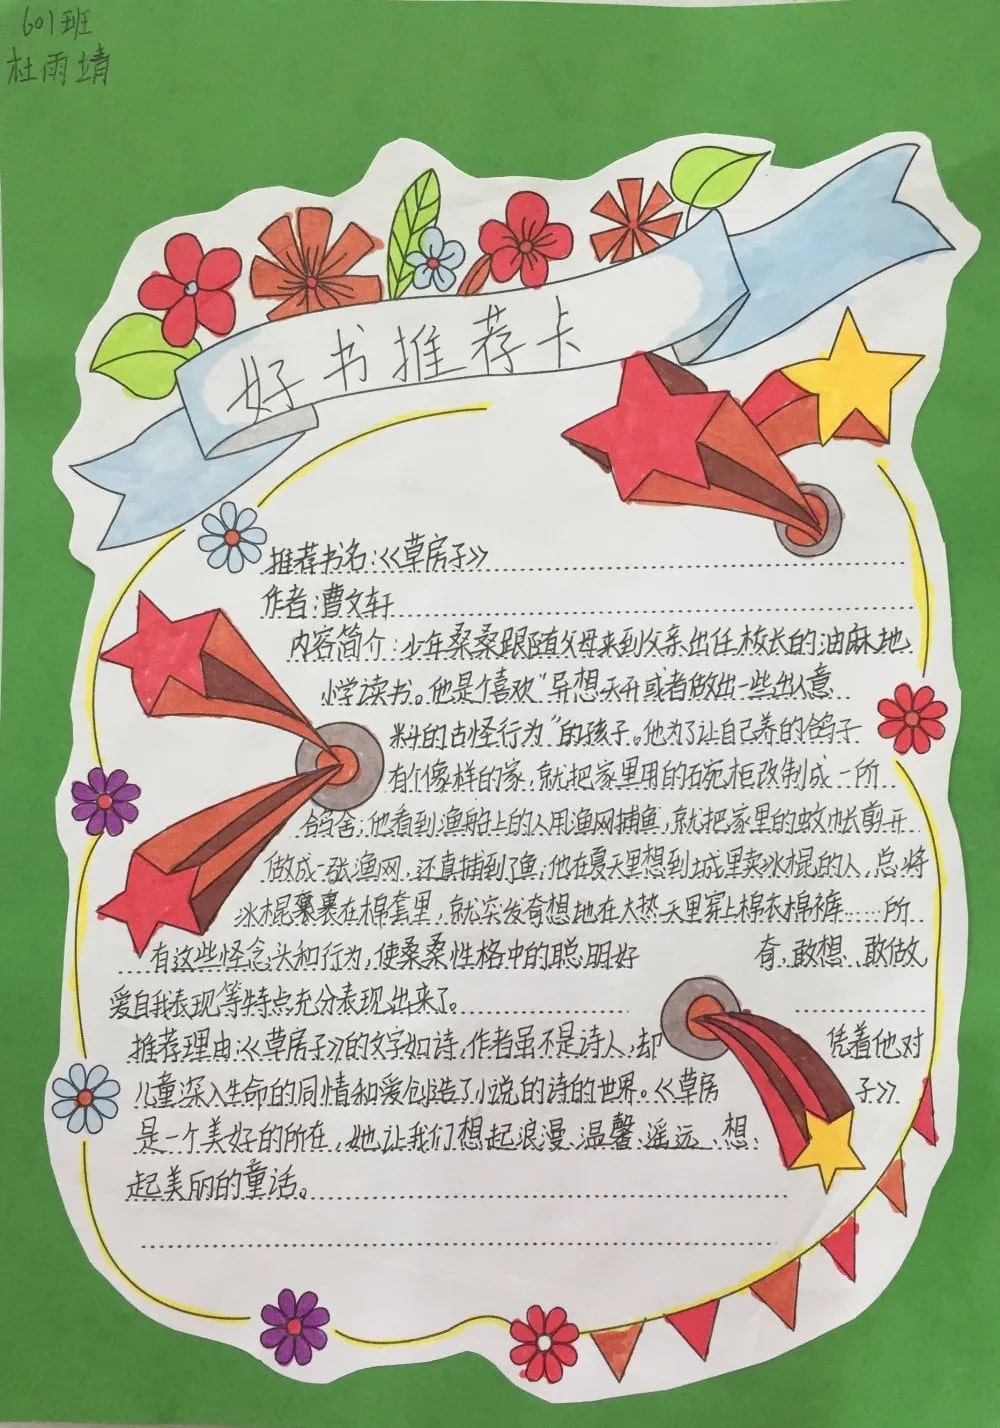 601班
杜雨靖
好书推荐卡
推荐书名:《草房子》
作者:曹文轩
内容简介:少年桑桑跟随父母来到父亲出任校长的油麻地
小学读书。他是个喜欢"异想天开或者做出一些出人意
料的古怪行为"的孩子。他为了让自己养的鸽子
有个像样的家,就把家里用的石宛柜改制成一所
鸽舍;他看到渔船上的人用渔网捕鱼,就把家里的蚊帐剪开
做成一张渔网,还真捕到了鱼;他在夏天里想到城里卖冰棍的人,总将
冰棍裹裹在棉套里,就突发奇想地在大热天里穿上棉衣棉裤……所
有这些怪念头和行为,使桑桑性格中的聪明好奇,敢想、敢做
爱自我表现等特点充分表现出来了。
推荐理由:《草房子》的文字如诗,作者虽不是诗人,却凭着他对
儿童深入生命的同情和爱创造了小说的诗的世界。《草房子》
是一个美好的所在,她让我们想起浪漫、温馨、遥远、想
起美丽的童话。